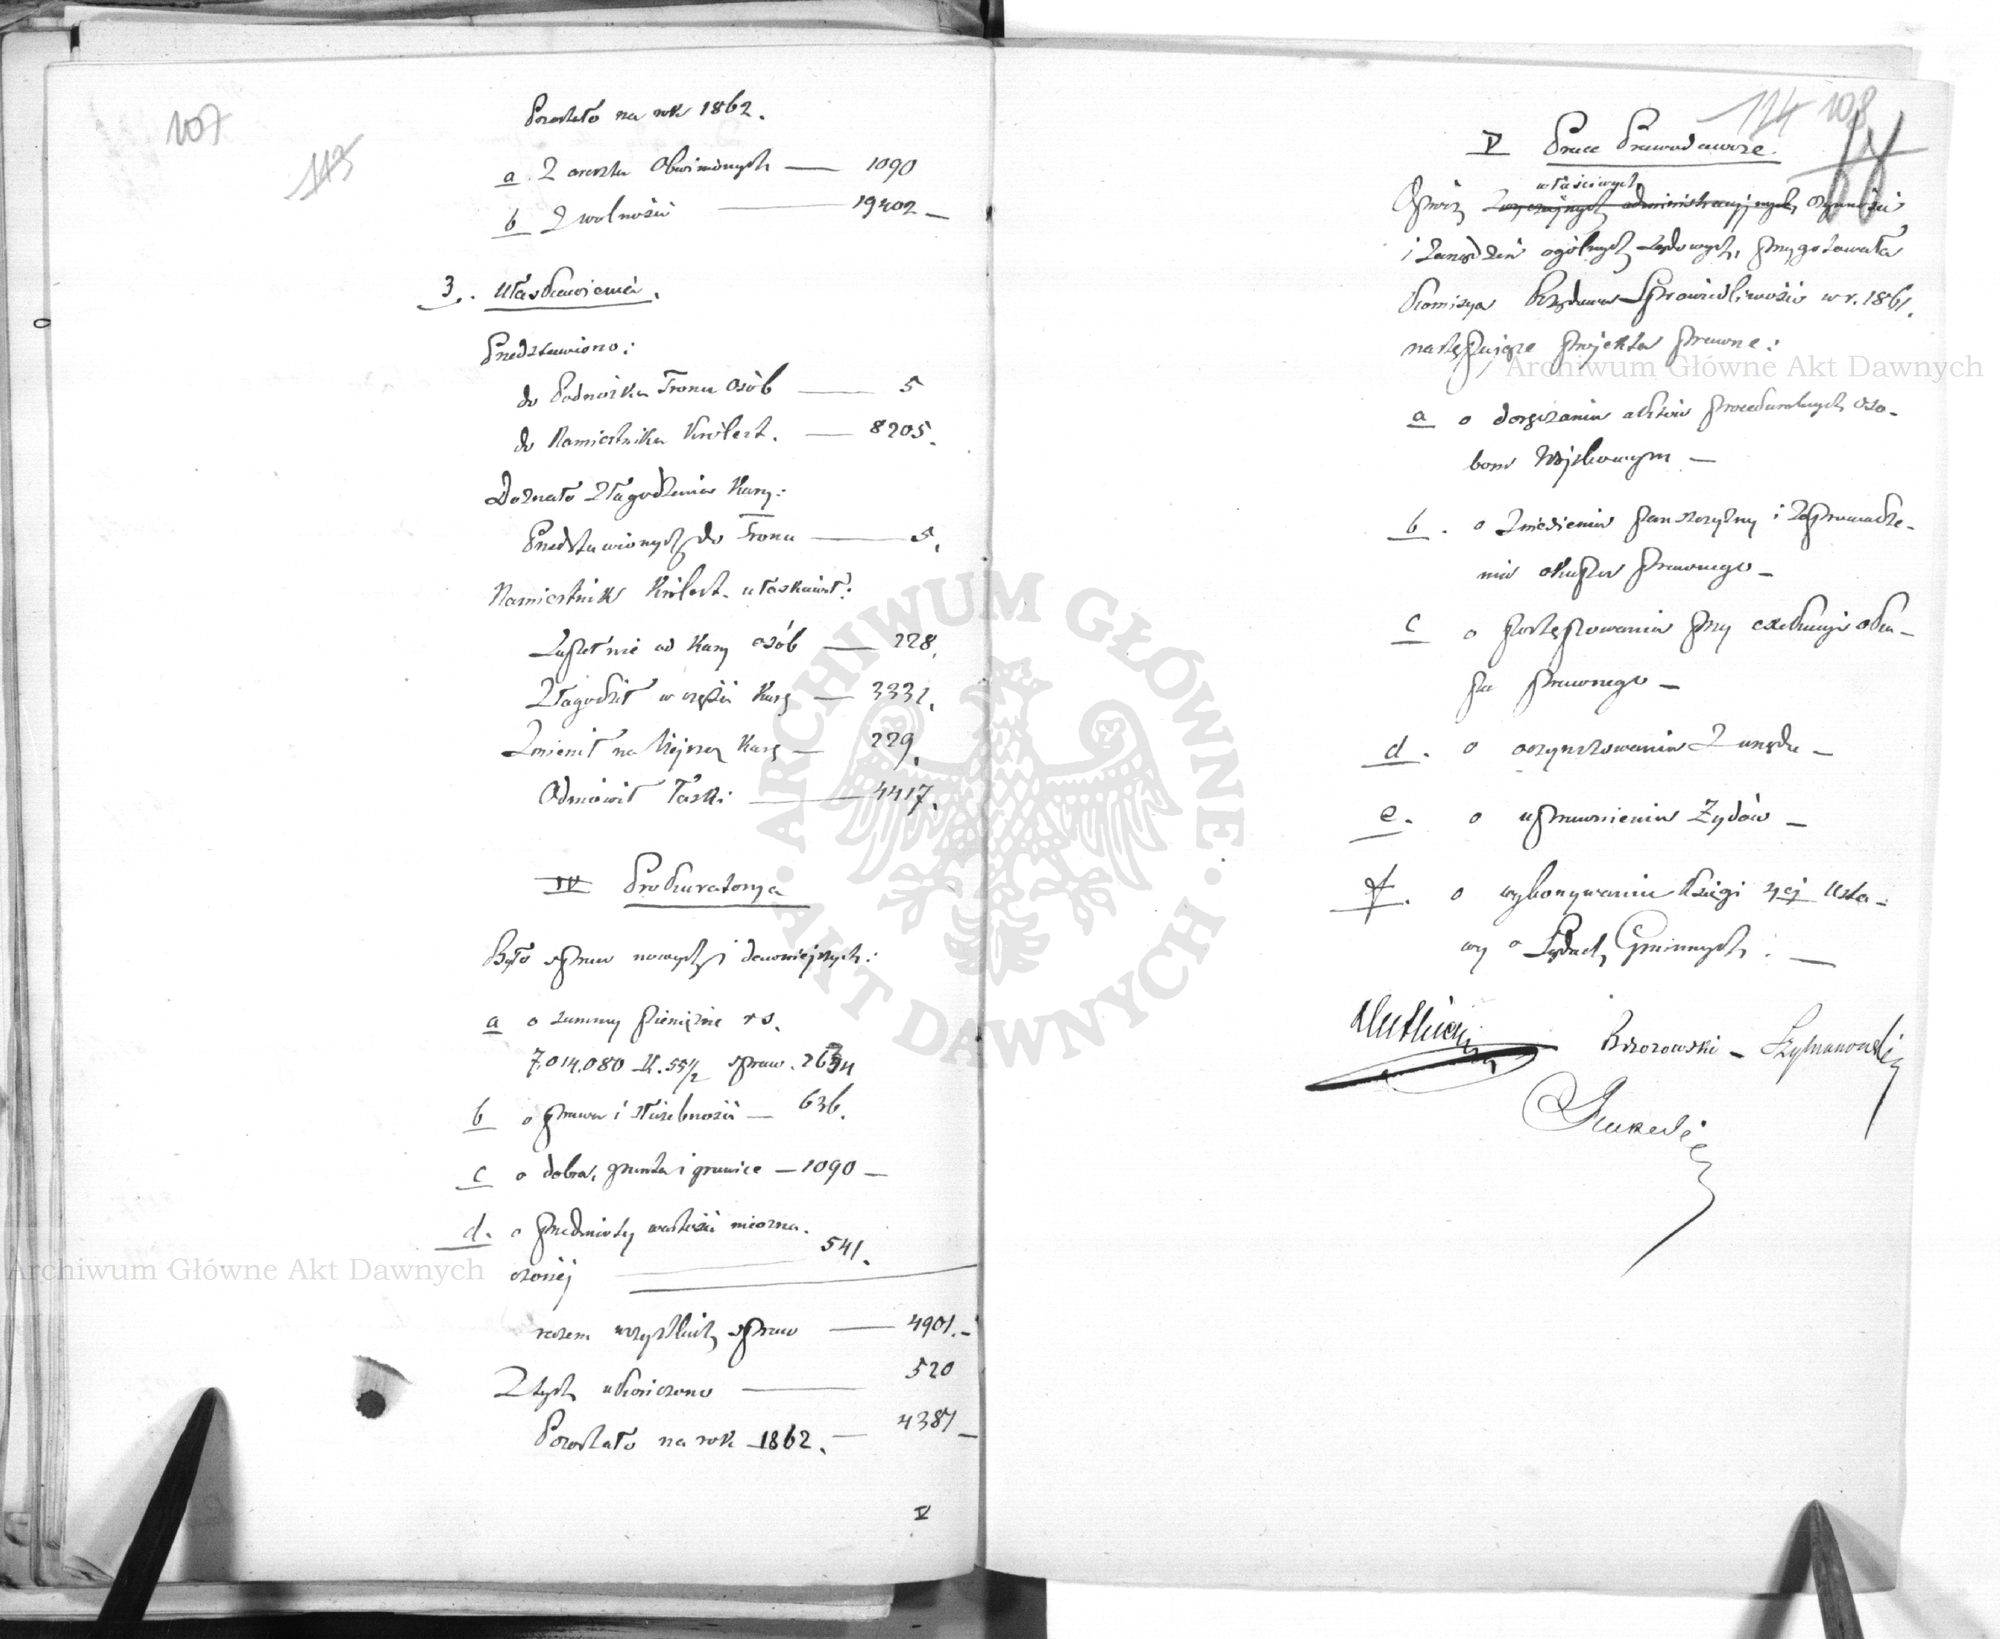 107
113
Pozostało na rok 1862.
a. Z aresztu Obwinionych — 1090
b Z wolności — 19402 —
3. Ułaskawienia.
Przedstawiono:
do Podnóżka Tronu osób — 5
do Namiestnika Królest. — 8205.
Doznało złagodzenia Kary:
Przedstawionych do Tronu — 5.
Namiestnik Królest. ułaskawił:
Zupełnie od Kary osób — 228.
Złagodził w części Karę — 3331.
Zmienił na lżejszą Karę — 229.
Odmówił łaski — 4417.
IV Prokuratorya
Było spraw nowych i dawniejszych:
a o summy pieniężne rs.
7,014,080 K. 55 1/2 spraw. 2634
b o prawa i służebności — 636.
c o dobra, grunta i granice — 1090 —
d. o przedmioty wartości nieozna-
czonéj — 541.
razem wszystkich spraw — 4901. —
Z tych ukończono — 520
Pozostało na rok 1862. — 4381 —
V
114 108
V Prace Prawodawcze.
właściwych
Oprócz administracyjnych czynności
i zarządzeń ogólnych sądowych, przygotowała
Komisya Rządowa Sprawiedliwości w r. 1861.
następujące projekta prawne:
a o doręczaniu aktów proceduralnych oso-
bom Wojskowym —
b. o zniesieniu pańszczyzny i zaprowadze-
niu okupu prawnego —
c o postępowaniu przy exekucyi oku-
pu prawnego —
d. o oczynszowaniu z urzędu —
e. o uprawnieniu Żydów —
f. o wykonywaniu księgi 4ej Usta-
wy o Sądach Gminnych. —
Brzozowski — Szymanowski
Archiwum Główne Akt Dawnych
Archiwum Główne Akt Dawnych
ARCHIWUM GŁÓWNE
AKT DAWNYCH